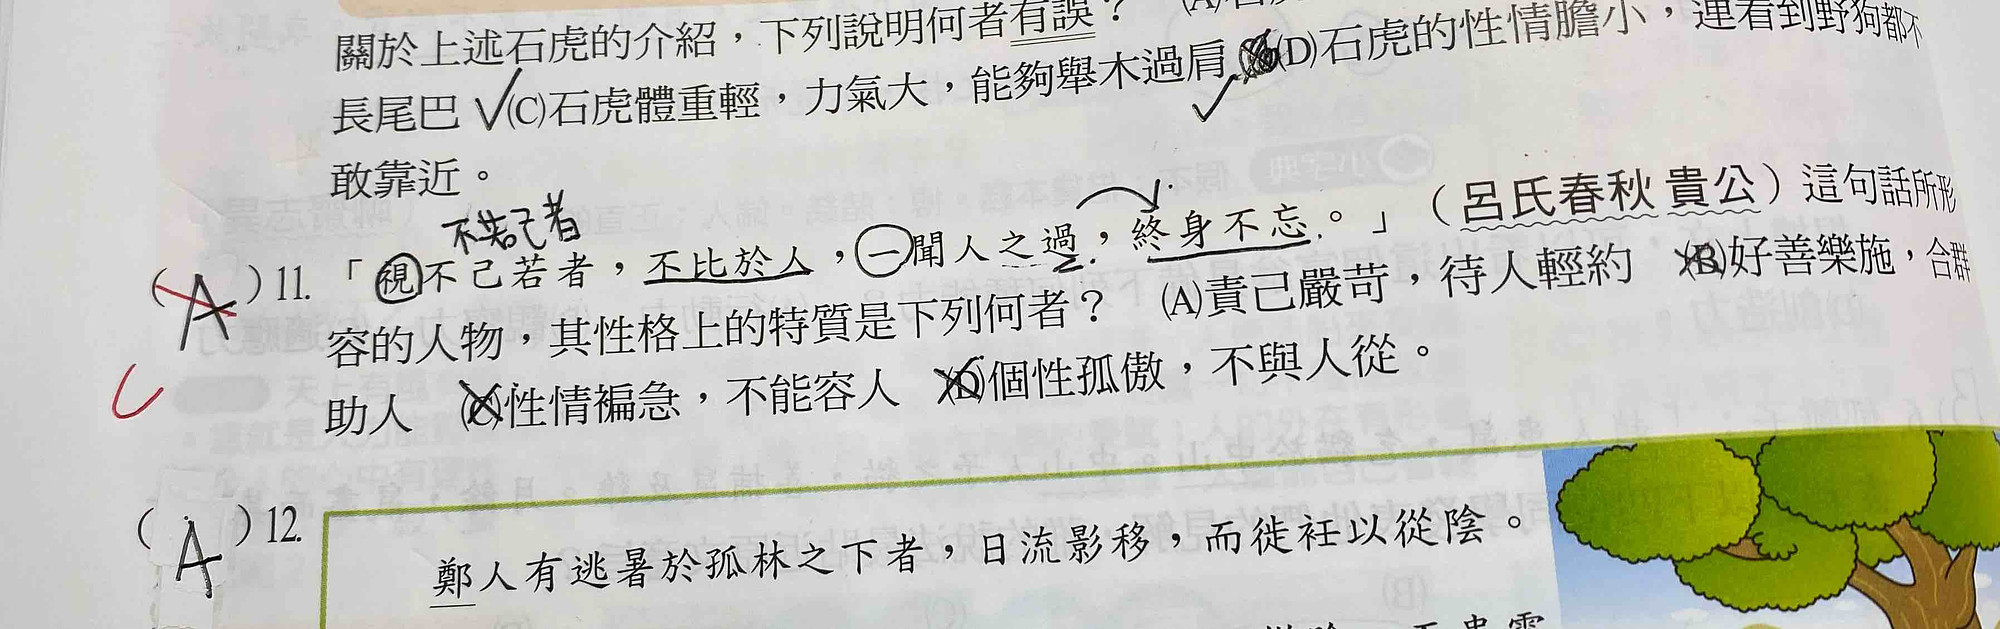 關於上述石虎的介紹，下列說明何者有誤？
長尾巴 (C)石虎體重輕，力氣大，能夠舉木過肩 (D)石虎的性情膽小，連看到野狗都不
敢靠近。
不若己者
( A )11.「視不己若者，不比於人，一聞人之過，終身不忘。」（呂氏春秋 貴公）這句話所形
容的人物，其性格上的特質是下列何者？ (A)責己嚴苛，待人輕約 (B)好善樂施，合群
助人 (C)性情褊急，不能容人 (D)個性孤傲，不與人從。
C
( A )12.
鄭人有逃暑於孤林之下者，日流影移，而徙衽以從陰。